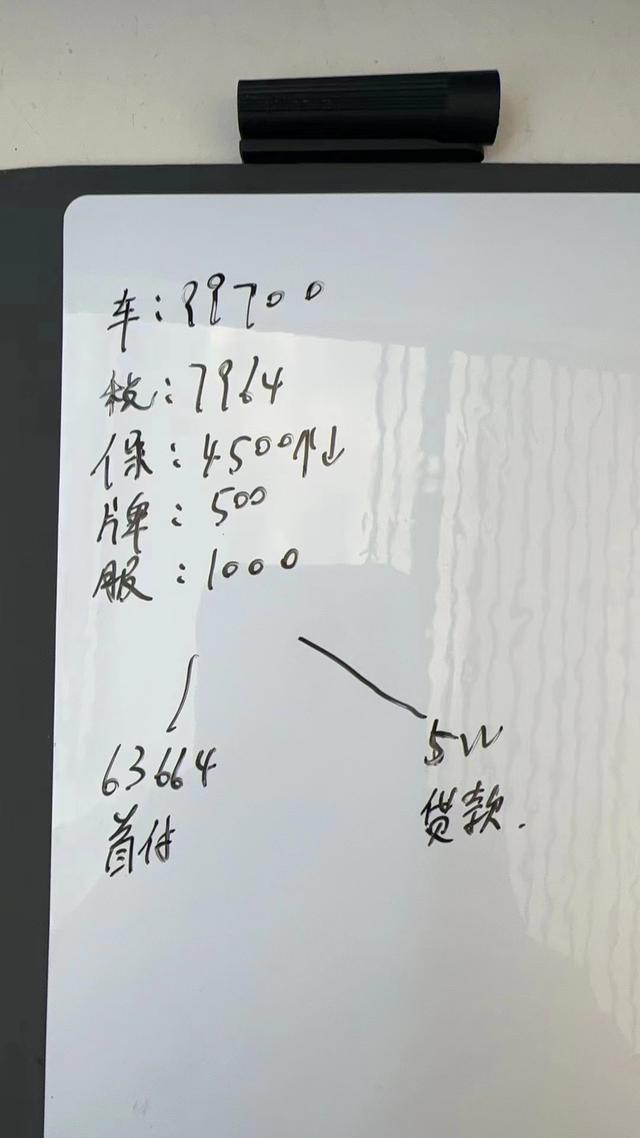 车：99700
税：7964
保：4500↑↓
牌：500
服：1000
63664
首付
5W
贷款.